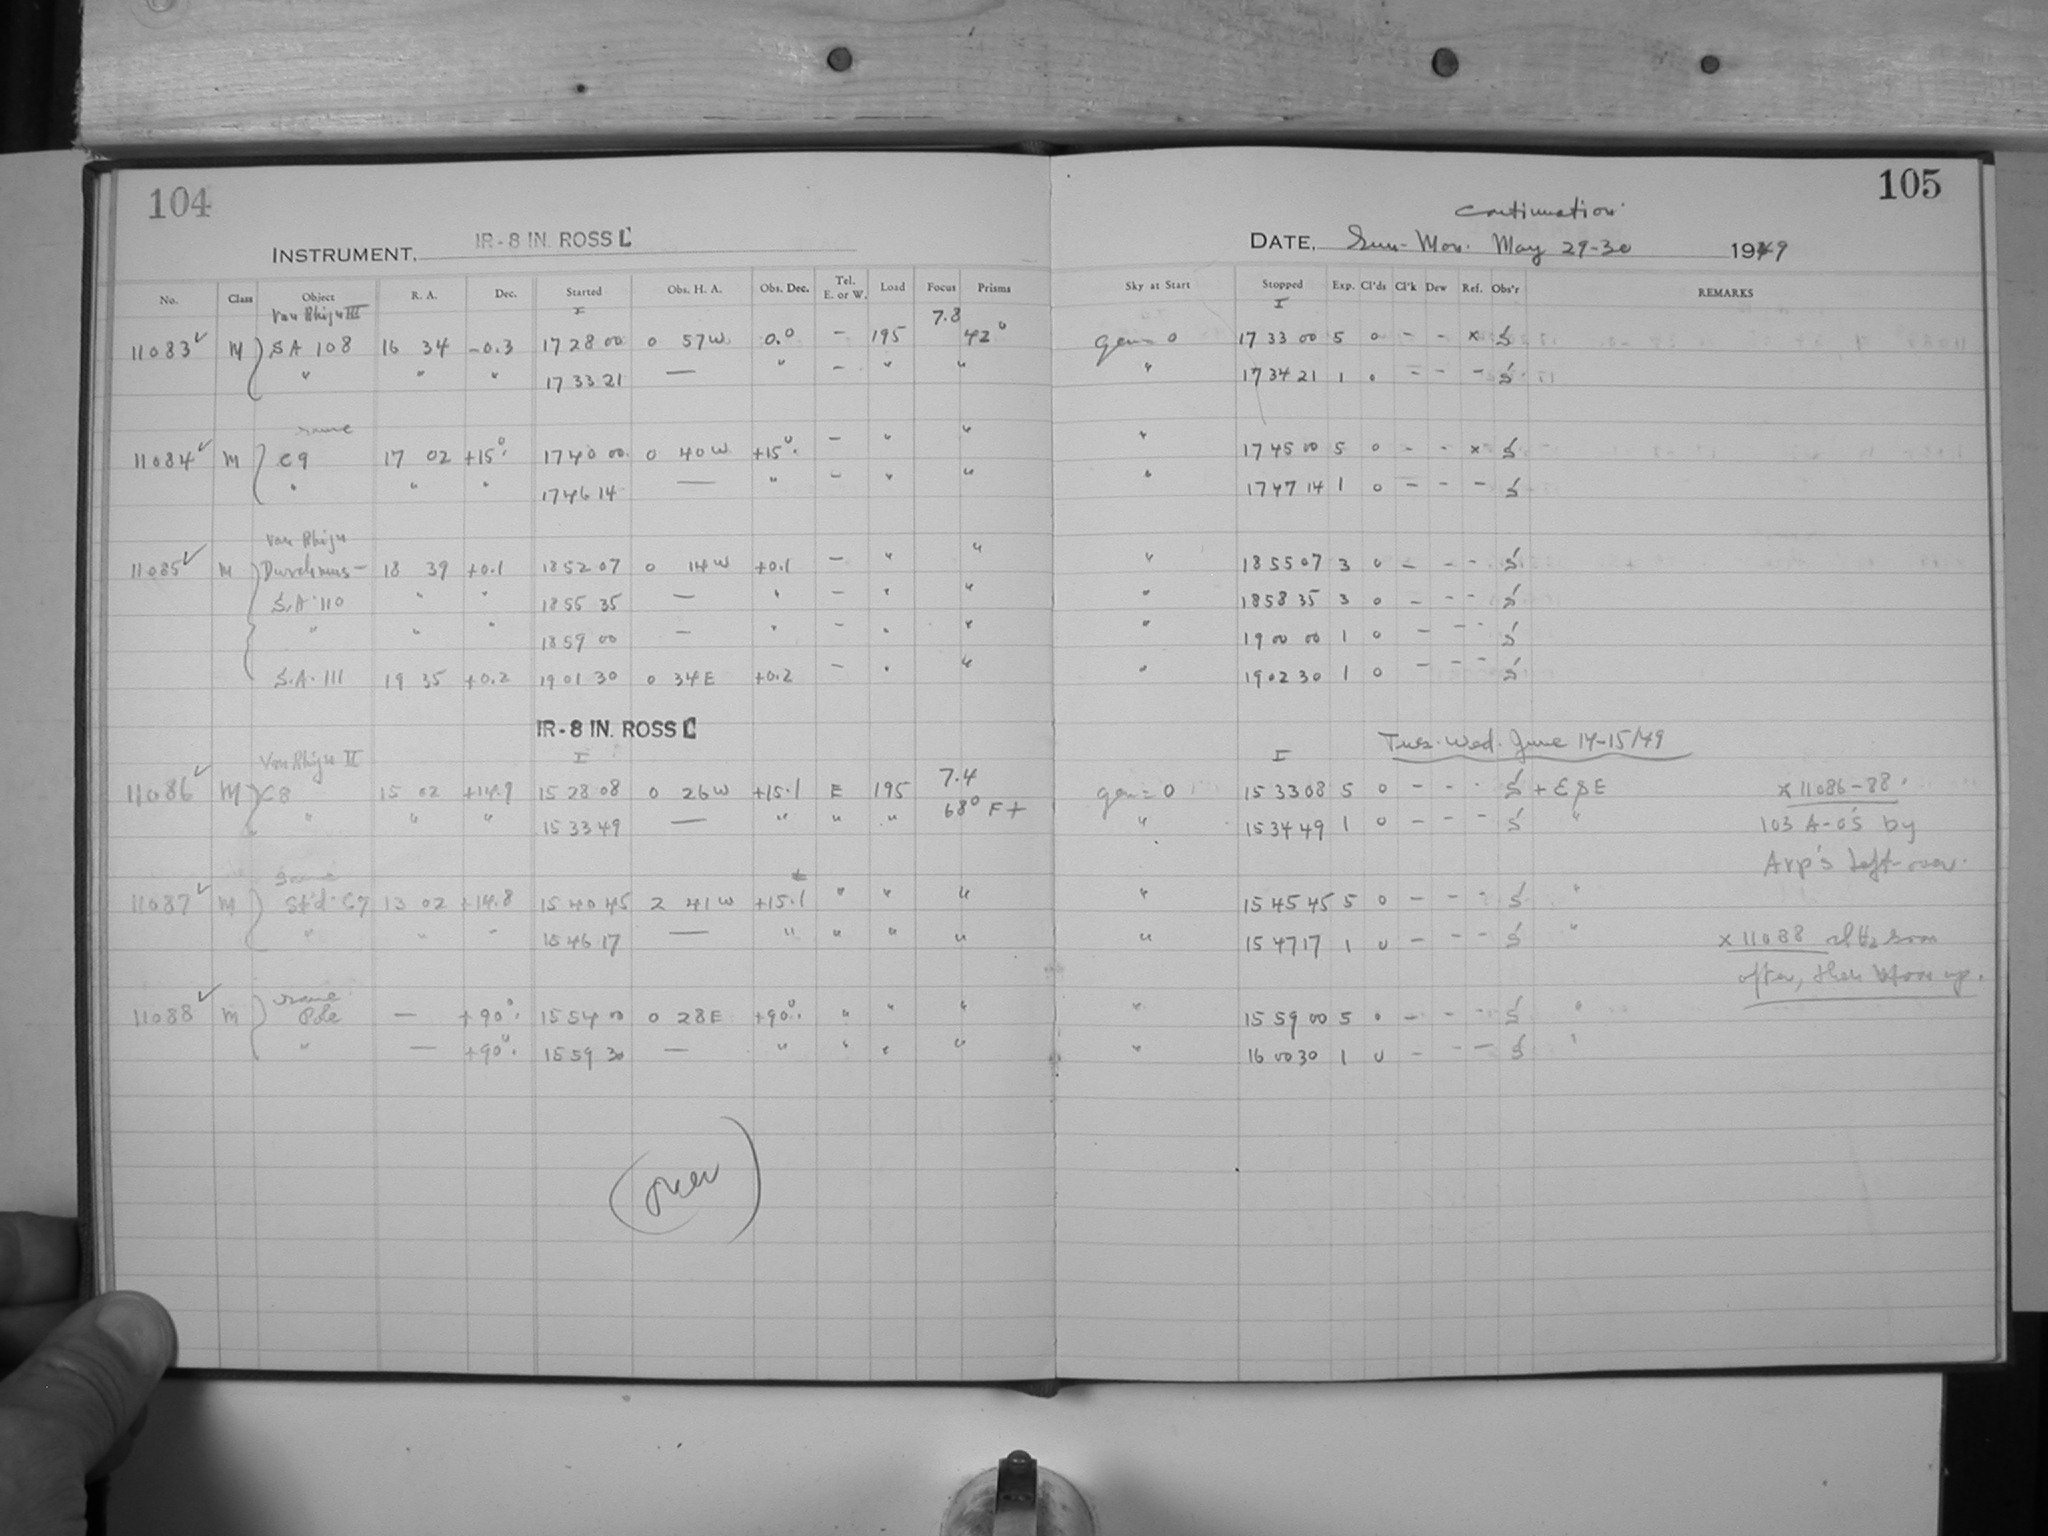 104
105
INSTRUMENT, IR-8 IN. ROSS C
continuation
DATE, Sun-Mon. May 29-30 1949
No. Class Object R. A. Dec. Started Obs. H. A. Obs. Dec. Tel. E. or W. Load Focus Prisms Sky at Start Stopped Exp. Cl'ds Cl'k Dew Ref. Obs'r REMARKS
Van Rhijn III I 7.8 I
11083 ✓ M SA 108 16 34 -0.3 17 28 00 0 57W 0.0° - 195 42° gen= 0 17 33 00 5 0 - - x S
" " " 17 33 21 — " - " " " 17 34 21 1 0 - - - S
same
11084 ✓ M C9 17 02 +15° 17 40 00 0 40W +15° - " " " 17 45 00 5 0 - - x S
" " " 17 46 14 — " - " " " 17 47 14 1 0 - - - S
Van Rhijn
11085 ✓ M Durchmus- 18 39 +0.1 18 52 07 0 14W +0.1 - " " " 18 55 07 3 0 - - - S
S.A. 110 " " 18 55 35 — " - " " " 18 58 35 3 0 - - - S
" " " 18 59 00 — " - " " " 19 00 00 1 0 - - - S
S.A. 111 19 35 +0.2 19 01 30 0 34E +0.2 - " " " 19 02 30 1 0 - - - S
IR-8 IN. ROSS C
Tues-Wed. June 14-15/49
Van Rhijn II I I
11086 ✓ M C8 15 02 +14.9 15 28 08 0 26W +15.1 E 195 7.4 gen= 0 15 33 08 5 0 - - - S + E&E x 11086-88.
" " " 15 33 49 — " " " 68° F+ " 15 34 49 1 0 - - - S " 103 A-O's by
Arp's left-over.
same
11087 ✓ M St'd. C7 13 02 +14.8 15 40 45 2 41W +15.1 " " " " 15 45 45 5 0 - - - S "
" " - 15 46 17 — " " " " " 15 47 17 1 0 - - - S " x 11088
after, then up.
same
11088 ✓ M Pole — +90° 15 54 00 0 28E +90° " " " " 15 59 00 5 0 - - - S "
" — +90° 15 59 30 — " " " " " 16 00 30 1 0 - - - S "
(over)